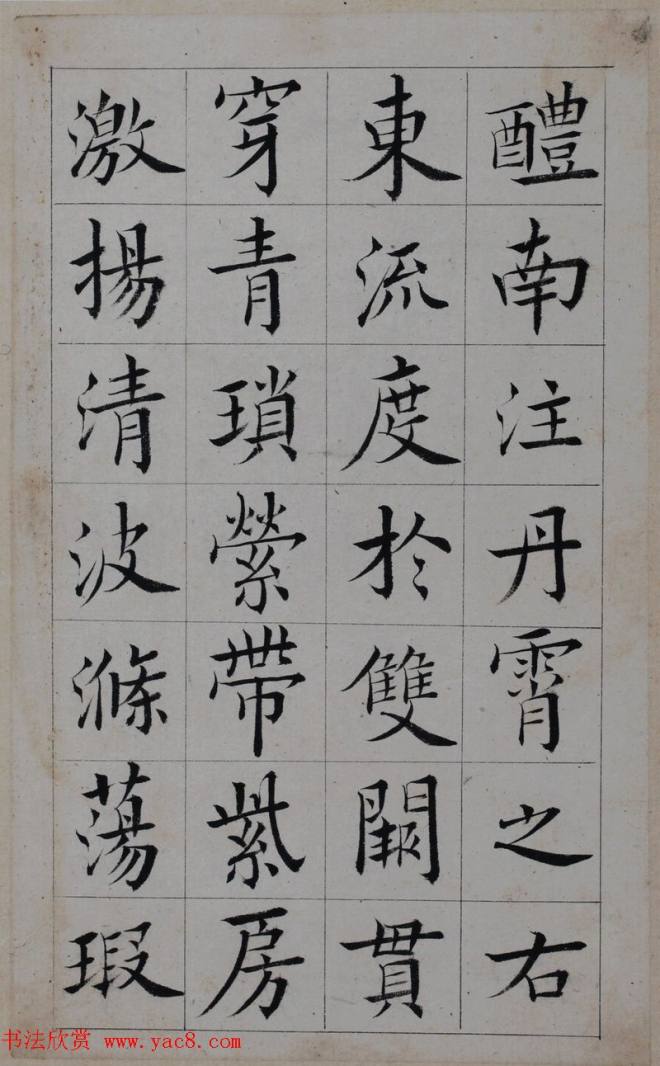 醴南注丹霄之右
東流度於雙闕貫
穿青瑣縈帶紫房
激揚清波滌蕩瑕
书法欣赏 www.yac8.com